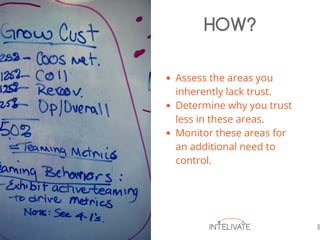 Grow Cust
25% - COOS Met.
125% - Coll
125% - Recov.
25% - Op/Overall
50%
= Teaming Metrics
eaming Behaviors:
- Exhibit active teaming
to drive metrics
NOTE: See 4-1's.
HOW?
• Assess the areas you
inherently lack trust.
• Determine why you trust
less in these areas.
• Monitor these areas for
an additional need to
control.
INTELIVATE